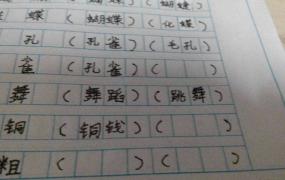 蝶（蝴蝶）（化蝶）
孔（孔雀）（毛孔）
雀（孔雀）（ ）
舞（舞蹈）（跳舞）
铜（铜钱）（ ）
粗（ ）（ ）